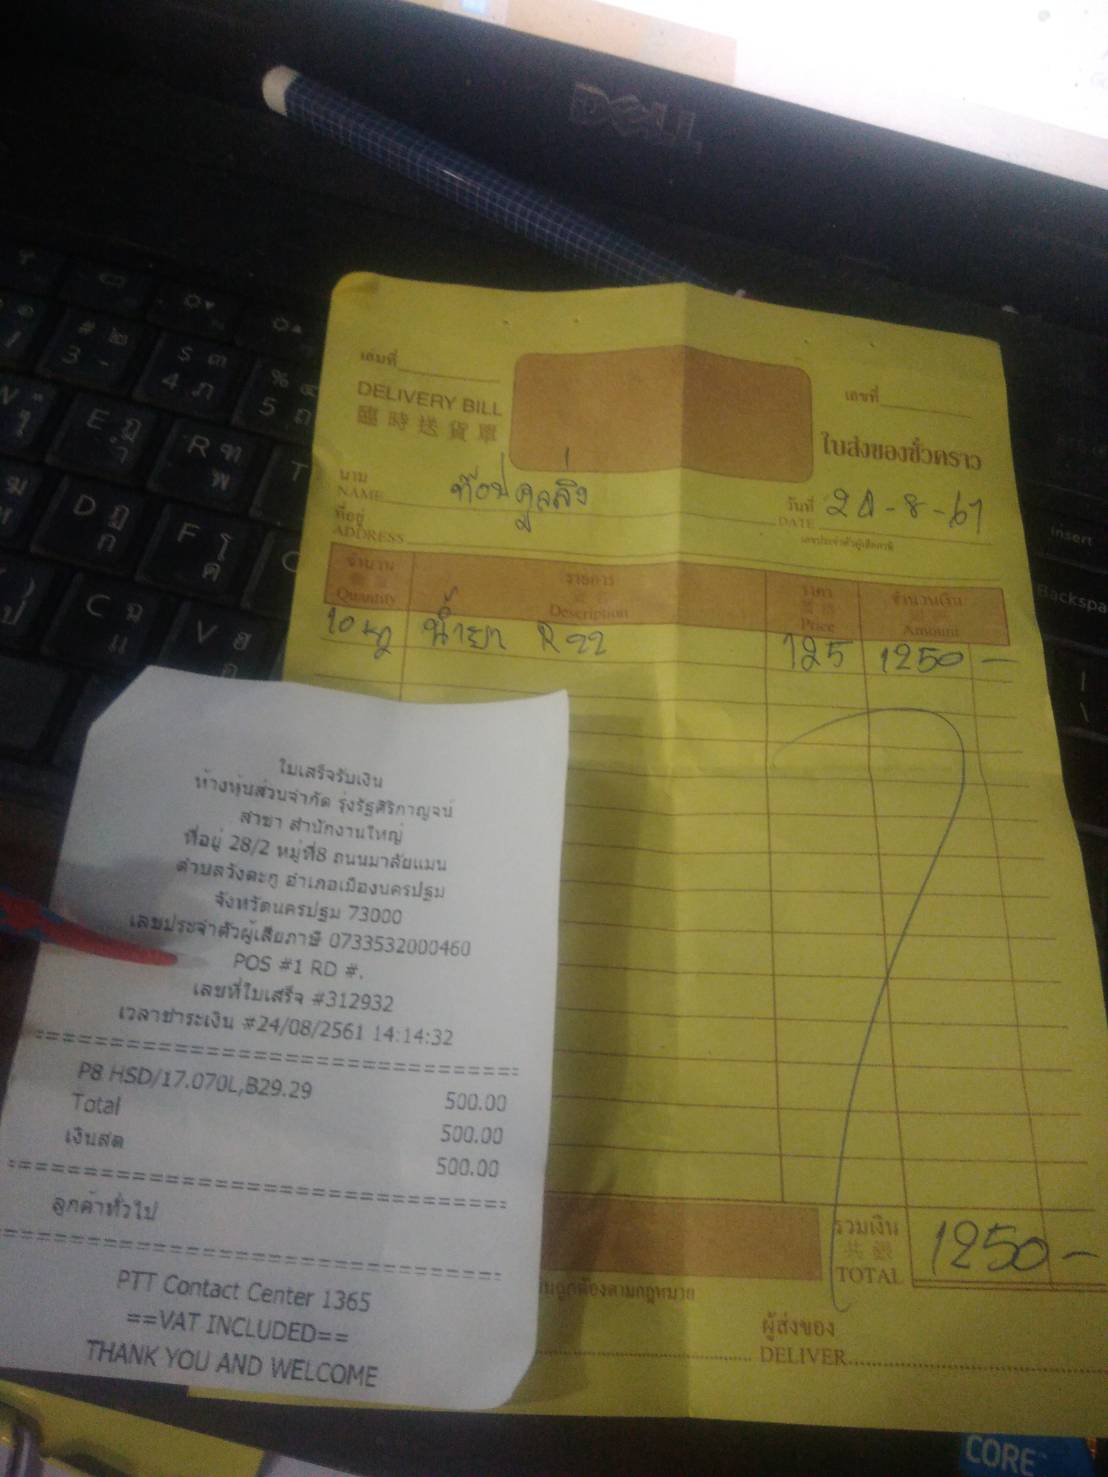 DELL
เล่มที่
เลขที่
DELIVERY BILL
臨時送貨單
ใบส่งของชั่วคราว
นาม
NAME
ท๊อปคูลลิ่ง
วันที่
DATE
ที่อยู่
ADDRESS
เลขประจำตัวผู้เสียภาษี
จำนวน รายการ ราคา จำนวนเงิน
Quantity Description Price Amount
น้ำยา R22 125 1250 -
รวมเงิน
共銀
TOTAL
1250 -
ผู้ส่งของ
DELIVER
ใบเสร็จรับเงิน
ห้างหุ้นส่วนจำกัด รุ่งรัฐศิริกาญจน์
สาขา สำนักงานใหญ่
ที่อยู่ 28/2 หมู่ที่8 ถนนมาลัยแมน
ตำบลวังตะกู อำเภอเมืองนครปฐม
จังหวัดนครปฐม 73000
เลขประจำตัวผู้เสียภาษี 0733532000460
POS #1 RD #.
เลขที่ใบเสร็จ #312932
เวลาชำระเงิน #24/08/2561 14:14:32
P8 HSD/17.070L,B29.29 500.00
Total 500.00
เงินสด 500.00
ลูกค้าทั่วไป
PTT Contact Center 1365
==VAT INCLUDED==
THANK YOU AND WELCOME
Insert
Backspa
CORE